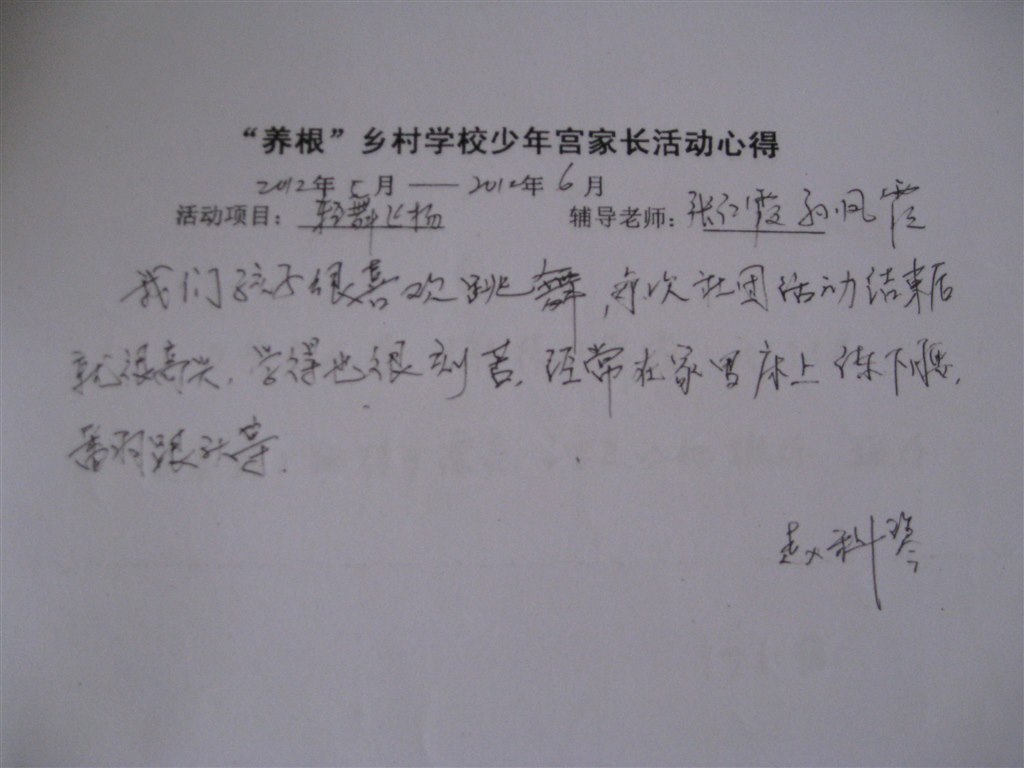 “养根”乡村学校少年宫家长活动心得
2012年5月——2012年6月
活动项目：轻舞飞扬 辅导老师：张红霞 孙凤霞
我们孩子很喜欢跳舞，每次社团活动结束后
就很高兴，学得也很刻苦，经常在家里床上练下腰，
翻跟头等.
赵科琴